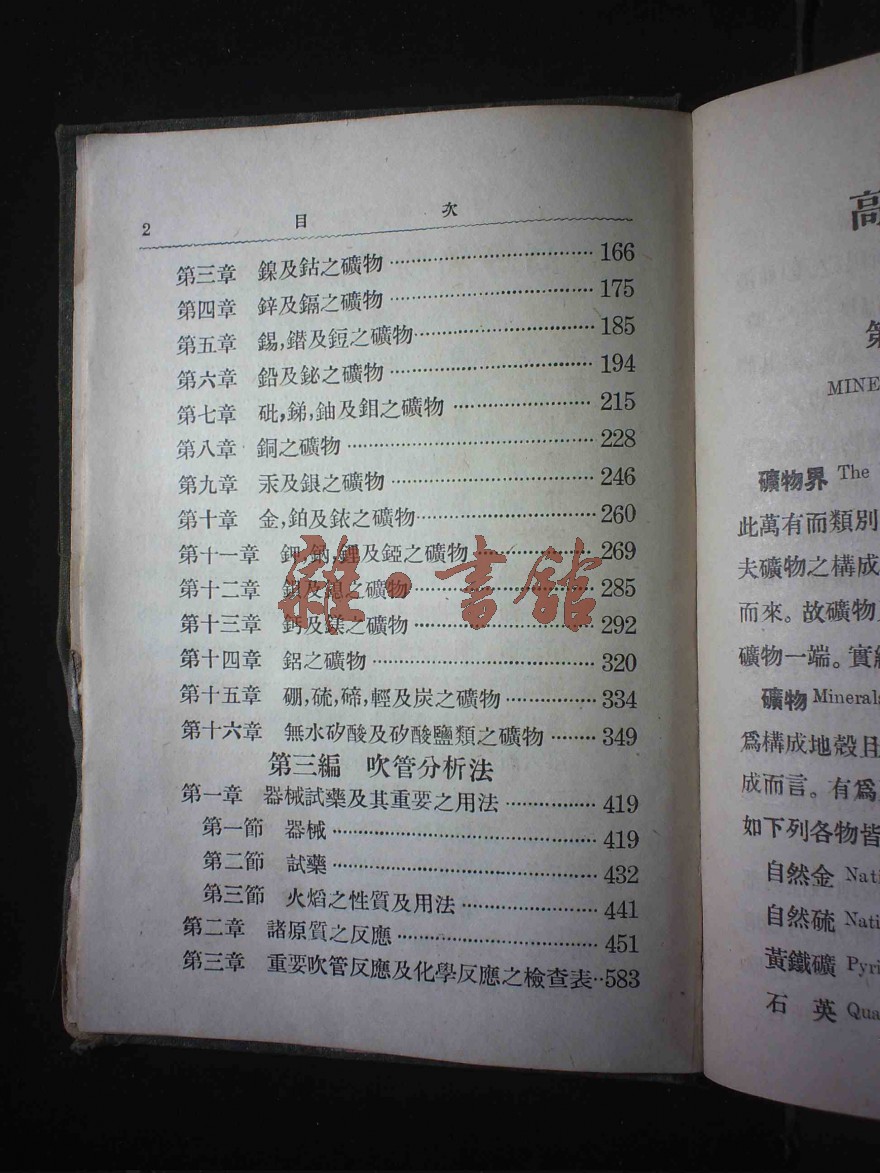 2 目 次
第三章 鎳及鈷之礦物 166
第四章 鋅及鎘之礦物 175
第五章 錫,鍺及鋀之礦物 185
第六章 鉛及鉍之礦物 194
第七章 砒,銻,鈾及鉬之礦物 215
第八章 銅之礦物 228
第九章 汞及銀之礦物 246
第十章 金,鉑及銥之礦物 260
第十一章 鉀,鈉,鋰及錏之礦物 269
第十二章 鋇及鎴之礦物 285
第十三章 鈣及鎂之礦物 292
第十四章 鋁之礦物 320
第十五章 硼,硫,碲,輕及炭之礦物 334
第十六章 無水矽酸及矽酸鹽類之礦物 349
第三編 吹管分析法
第一章 器械試藥及其重要之用法 419
第一節 器械 419
第二節 試藥 432
第三節 火焰之性質及用法 441
第二章 諸原質之反應 451
第三章 重要吹管反應及化學反應之檢查表 583
雜·書館
高
第
MINE
礦物界 The
此萬有而類別
夫礦物之構成
而來。故礦物
礦物一端。實
礦物 Minerals
爲構成地殼且
成而言。有爲
如下列各物皆
自然金 Nati
自然硫 Nati
黃鐵礦 Pyri
石 英 Qua